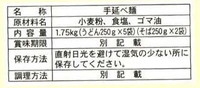 品名 手延べ麺
原材料名 小麦粉、食塩、ゴマ油
内容量 1.75kg(うどん250g×5袋)(そば250g×2袋)
賞味期限 別記載
保存方法 直射日光を避けて湿気の少ない所に保存してください。
調理方法 別記載